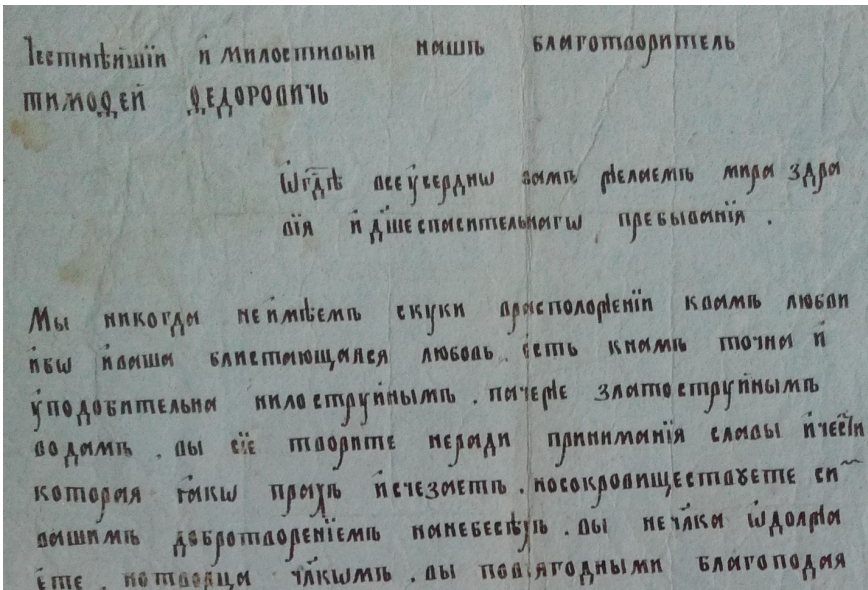 Честнѣйшїй и҆ милостивый нашъ благотворитель
ТИМОѲЕЙ ѲЕДОРОВИЧЬ
Ѿ гдⷭ҇ѣ всеусердиѡ вамъ желаемъ мира здра
вїя и҆ дш҃еспасительнагѡ пребыванїя .
Мы никогда неимѣемъ скуки врасположенїи квамъ любви
и҆бѡ и҆ваша блистающаяся любовь . есть кнамъ точна и҆
уподобительна нилоструйнымъ . пачеже златоструйнымъ
водамъ . вы сїе творите неради приниманїя славы и҆чести
которая ꙗкѡ прахъ и҆счезаетъ . носокровиществꙋете си
вашимъ добротворенїемъ нанебесѣхъ . вы нечл҃ка ѡ҆должа
ете . нотворца чл҃кѡмъ . вы повсягодными благоподая